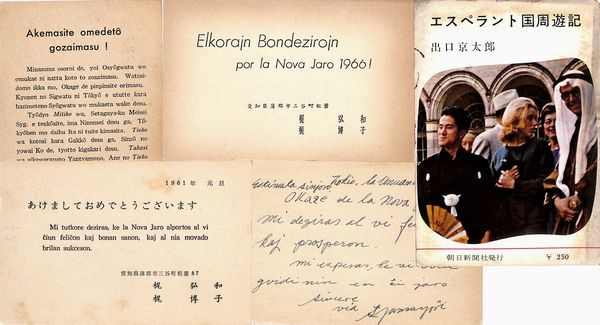 Akemasite omedetô
gozaimasu !
Minasama osoroi de, yoi Osyôgwatu wo
omukae ni natta koto to zonzimasu. Watasi-
domo ikka mo, Okage de pinpinsite orimasu.
Kyonen no Sigwatu ni Tôkyô e ututte kara
hazimeteno Syôgwatu wo mukaeta wake desu.
Tyôdyo Mitiko wa, Setagaya-ku Meisei
Syg. e tenkôsite, ima Ninensei desu ga, Tô-
kyôben mo daibu Ita ni tuite kimasita. Tieko
wa kotosi kara Gakkô desu ga, Sinzô no
yowai Ko de, tyotto kigakari desu. Takesi
wa aikawarazuno Yantyamono, Ane no Tieko
Elkorajn Bondezirojn
por la Nova Jaro 1966!
愛知県蒲郡市三谷町松葉
梶 弘 和
梶 博 子
エスペラント国周遊記
出口京太郎
朝日新聞社発行
¥ 250
1961 年 元 旦
あけましておめでとうございます
Mi tutkore deziras, ke la Nova Jaro alportos al vi
ĉiun feliĉon kaj bonan sanon, kaj al nia movado
brilan sukceson.
愛知県蒲郡市三谷町松葉 87
梶 弘 和
梶 博 子
Estimata sinjoro,
Okaze de la Nova
mi deziras al vi
kaj prosperon.
mi esperas, ke vi
gvidi nin en ĉi jaro
Sincere
via